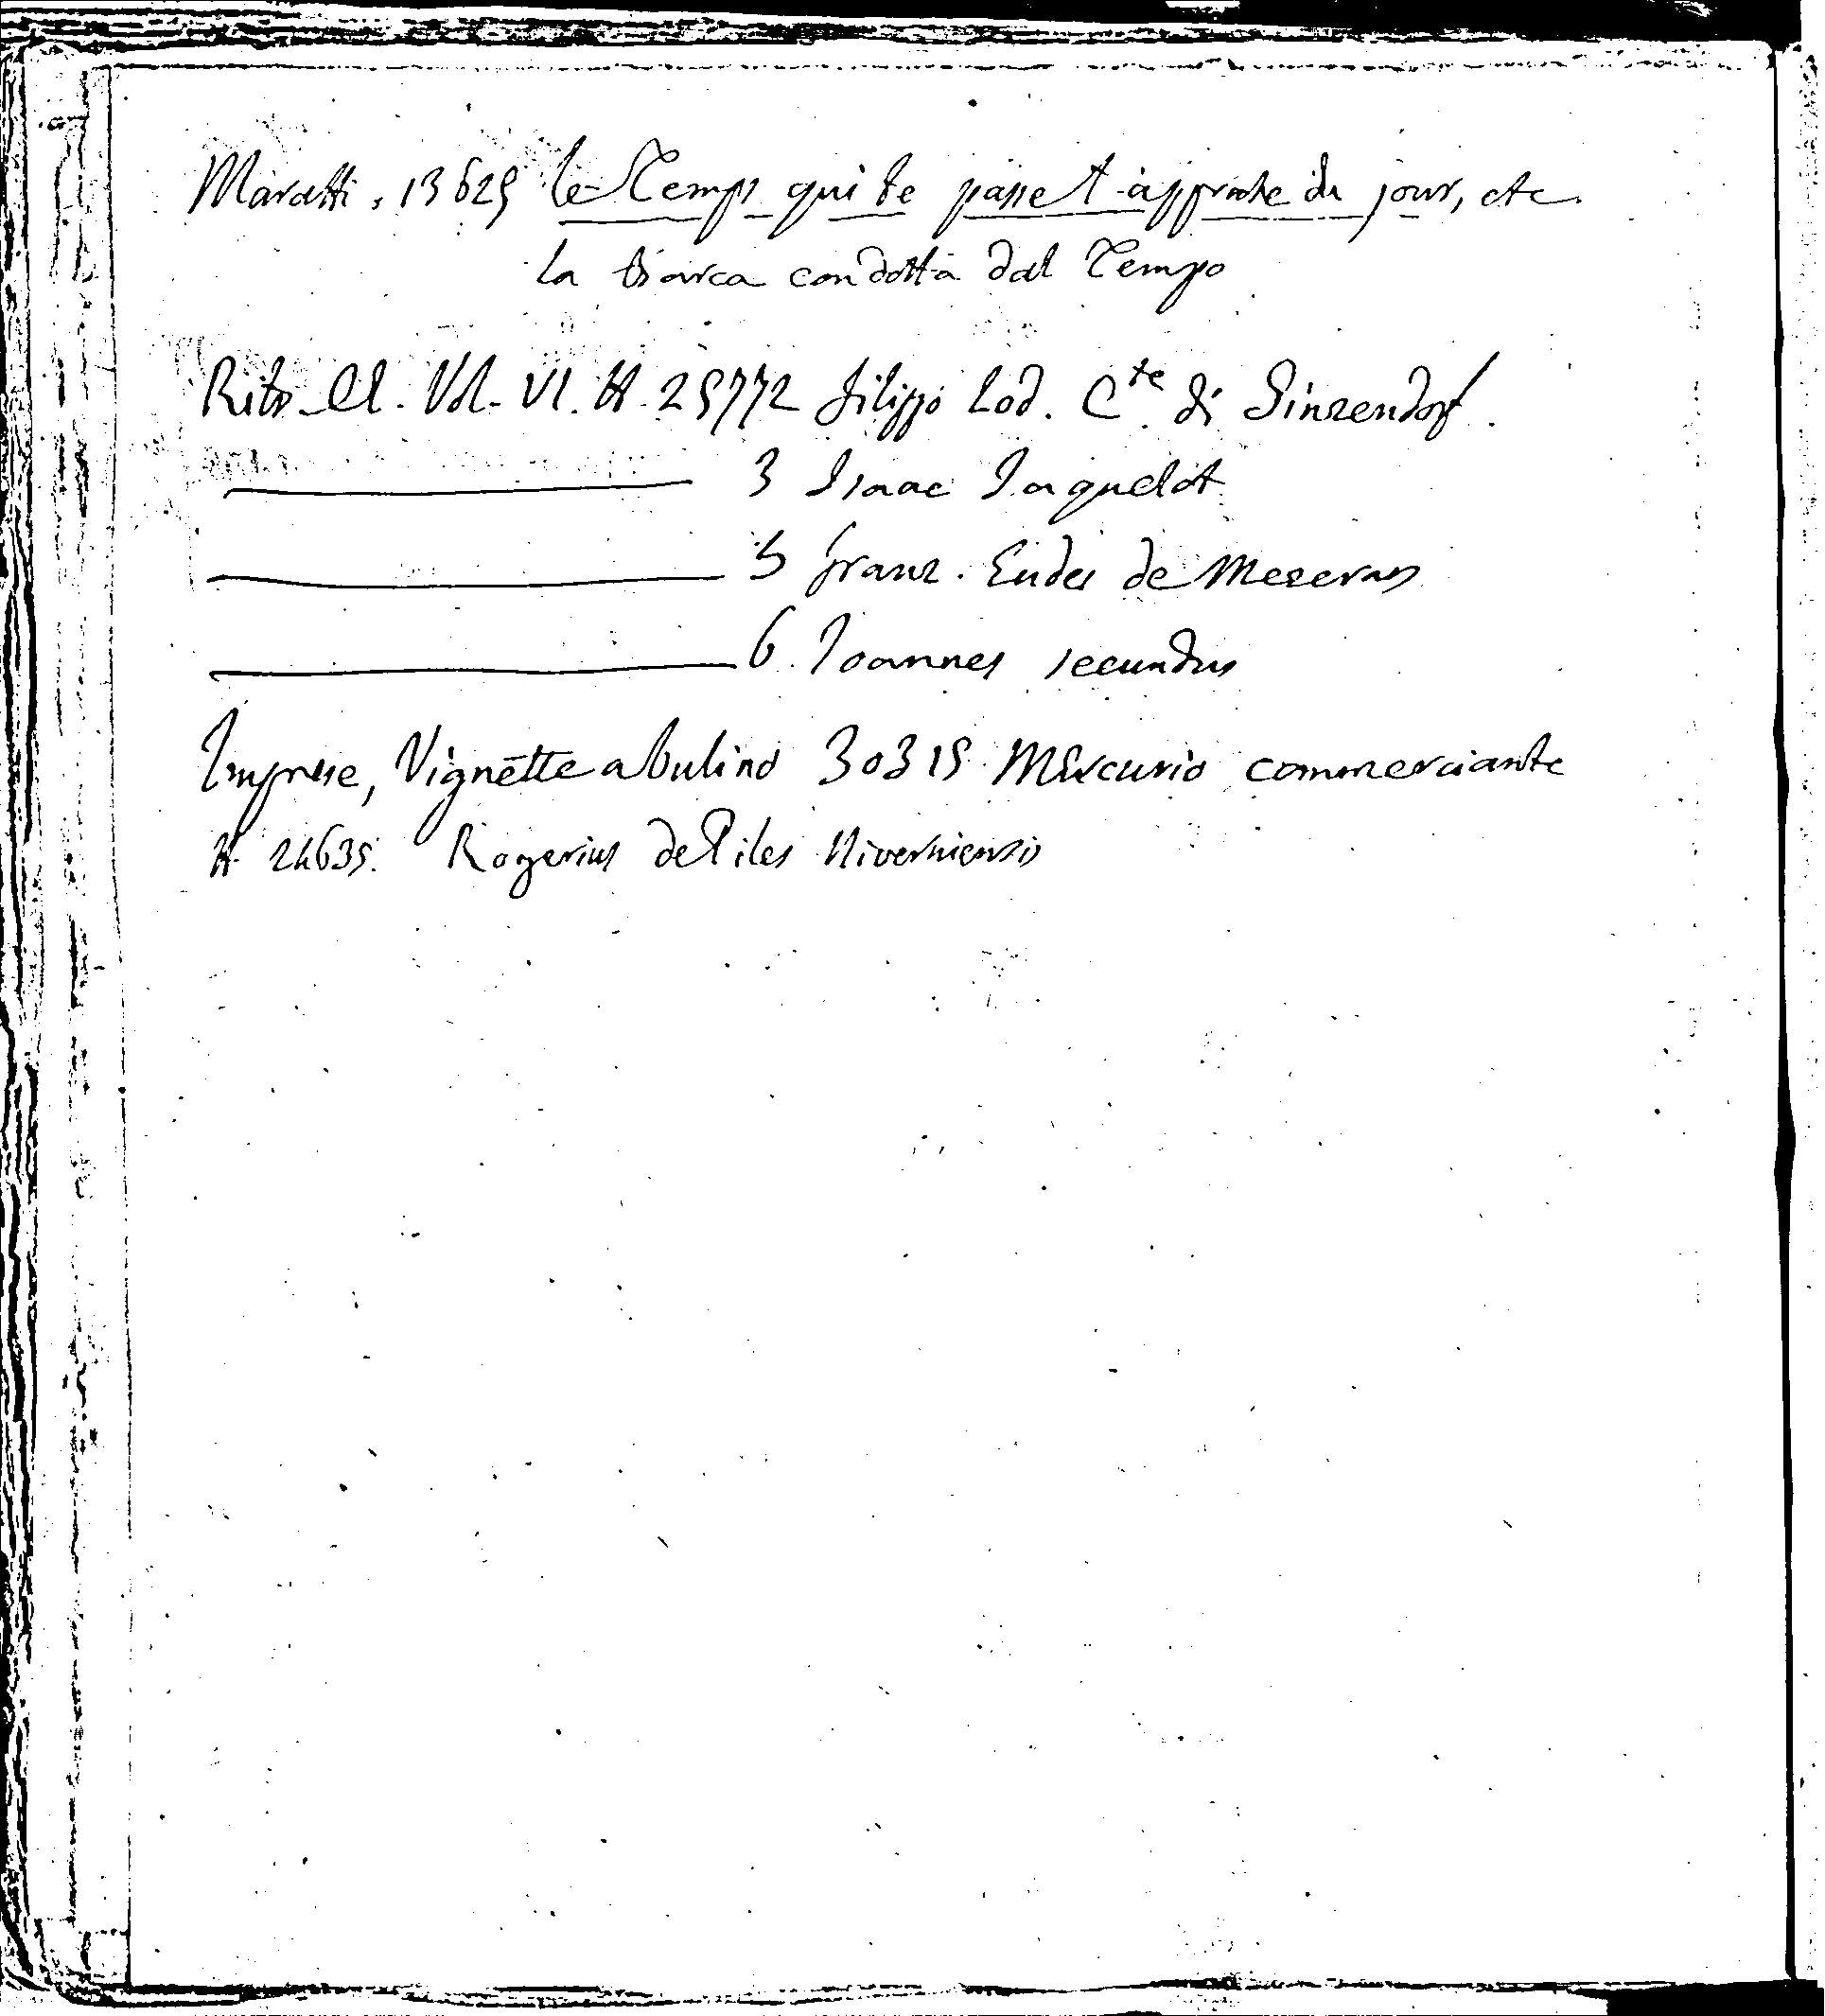 Maratti, 13625 le Temps qui se passe t approche du jour, etc.
La barca condotta dal Tempo
Ritr. Cl. Vol. VI. H. 25772 Filippo Lod. Cte di Sinzendorf.
3 Isaac Jaquelot
5 Franz. Eudes de Mezeray
6. Joannes secundus
Imprese, Vignette a bulino 30315. Mercurio commerciante
H. 24635. Rogerius de Piles Niverniensis